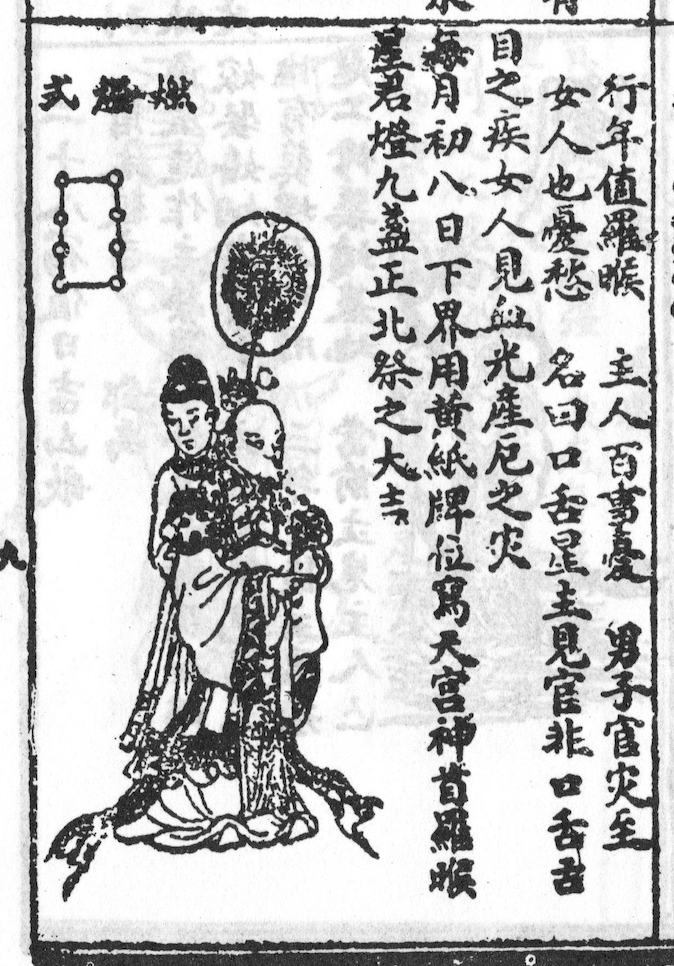 行年值羅睺　主人百事憂　男子官灾至
女人也憂愁　名曰口舌星主見官非口舌
目之疾女人見血光產厄之灾
每月初八日下界用黃紙牌位寫天宫神首羅睺
星君燈九盞正北祭之大吉
燃燈式
九